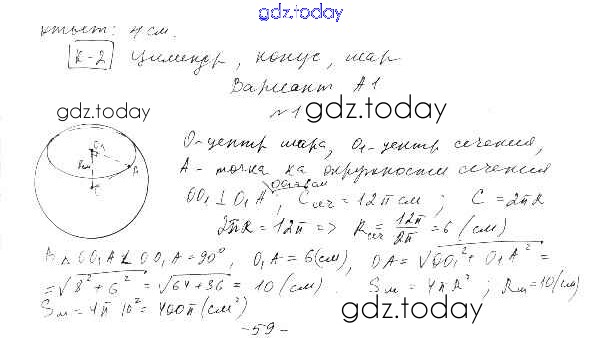 gdz.today
ответ: 4 см.
К-2 Цилиндр, конус, шар
Вариант А1
№1
gdz.today
gdz.today
O - центр шара, O₁ - центр сечения,
A - точка на окружности сечения
OO₁ ⊥ O₁A, Cсеч = 12π см; C = 2πR
2πR = 12π => Rсеч = 12π/2π = 6 (см)
∠OO₁A = 90°, O₁A = 6(см), OA = √OO₁² + O₁A² =
= √8² + 6² = √64 + 36 = 10 (см). Sш = 4πR²; Rш = 10(см)
Sш = 4π 10² = 400π (см²)
gdz.today
- 59 -